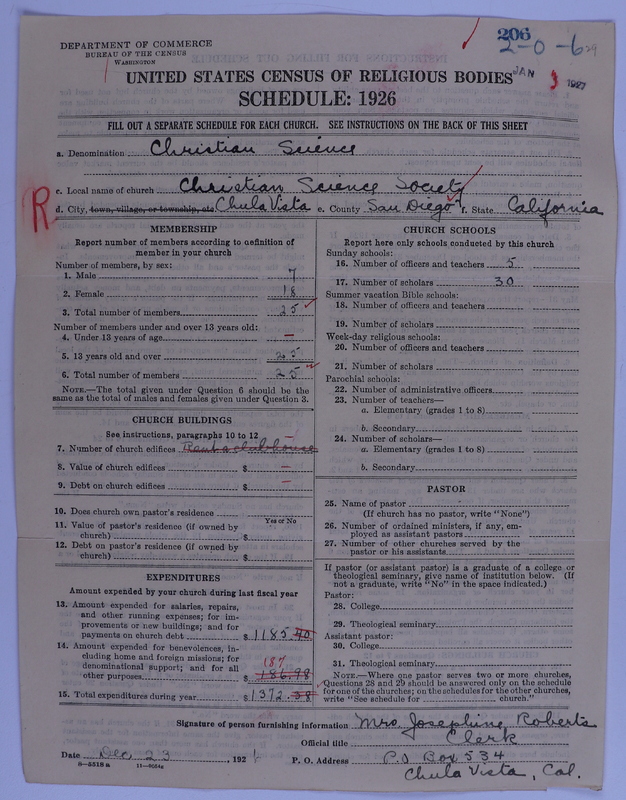 206
2-0-629
DEPARTMENT OF COMMERCE
BUREAU OF THE CENSUS
WASHINGTON
JAN 3 1927
UNITED STATES CENSUS OF RELIGIOUS BODIES
SCHEDULE: 1926
FILL OUT A SEPARATE SCHEDULE FOR EACH CHURCH. SEE INSTRUCTIONS ON THE BACK OF THIS SHEET
a. Denomination Christian Science
c. Local name of church Christian Science Society
R
d. City, town, village, or township, etc Chula Vista e. County San Diego f. State California
MEMBERSHIP
Report number of members according to definition of
member in your church
Number of members, by sex:
1. Male 7
2. Female 18
3. Total number of members 25
Number of members under and over 13 years old:
4. Under 13 years of age —
5. 13 years old and over 25
6. Total number of members 25
NOTE.—The total given under Question 6 should be the
same as the total of males and females given under Question 3.
CHURCH BUILDINGS
See instructions, paragraphs 10 to 12
7. Number of church edifices Rent a clubhouse
8. Value of church edifices $ —
9. Debt on church edifices $ —
10. Does church own pastor's residence
Yes or No
11. Value of pastor's residence (if owned by
church) $
12. Debt on pastor's residence (if owned by
church) $
EXPENDITURES
Amount expended by your church during last fiscal year
13. Amount expended for salaries, repairs,
and other running expenses; for im-
provements or new buildings; and for
payments on church debt $ 1185.40
14. Amount expended for benevolences, in-
cluding home and foreign missions; for
denominational support; and for all
other purposes $ 186.98
187
15. Total expenditures during year $ 1372.38
CHURCH SCHOOLS
Report here only schools conducted by this church
Sunday schools:
16. Number of officers and teachers 5
17. Number of scholars 30
Summer vacation Bible schools:
18. Number of officers and teachers
19. Number of scholars
Week-day religious schools:
20. Number of officers and teachers
21. Number of scholars
Parochial schools:
22. Number of administrative officers
23. Number of teachers—
a. Elementary (grades 1 to 8)
b. Secondary
24. Number of scholars—
a. Elementary (grades 1 to 8)
b. Secondary
PASTOR
25. Name of pastor
(If church has no pastor, write "None")
26. Number of ordained ministers, if any, em-
ployed as assistant pastors
27. Number of other churches served by the
pastor or his assistants
If pastor (or assistant pastor) is a graduate of a college or
theological seminary, give name of institution below. (If
not a graduate, write "No" in the space indicated.)
Pastor:
28. College
29. Theological seminary
Assistant pastor:
30. College
31. Theological seminary
NOTE.—Where one pastor serves two or more churches,
Questions 28 and 29 should be answered only on the schedule
for one of the churches; on the schedules for the other churches,
write "See schedule for church."
Signature of person furnishing information Mrs. Josephine Roberts
Official title Clerk
Date Dec 23, 192
P. O. Address P.O Box 534
8—5518a 11—9054g
Chula Vista, Cal.